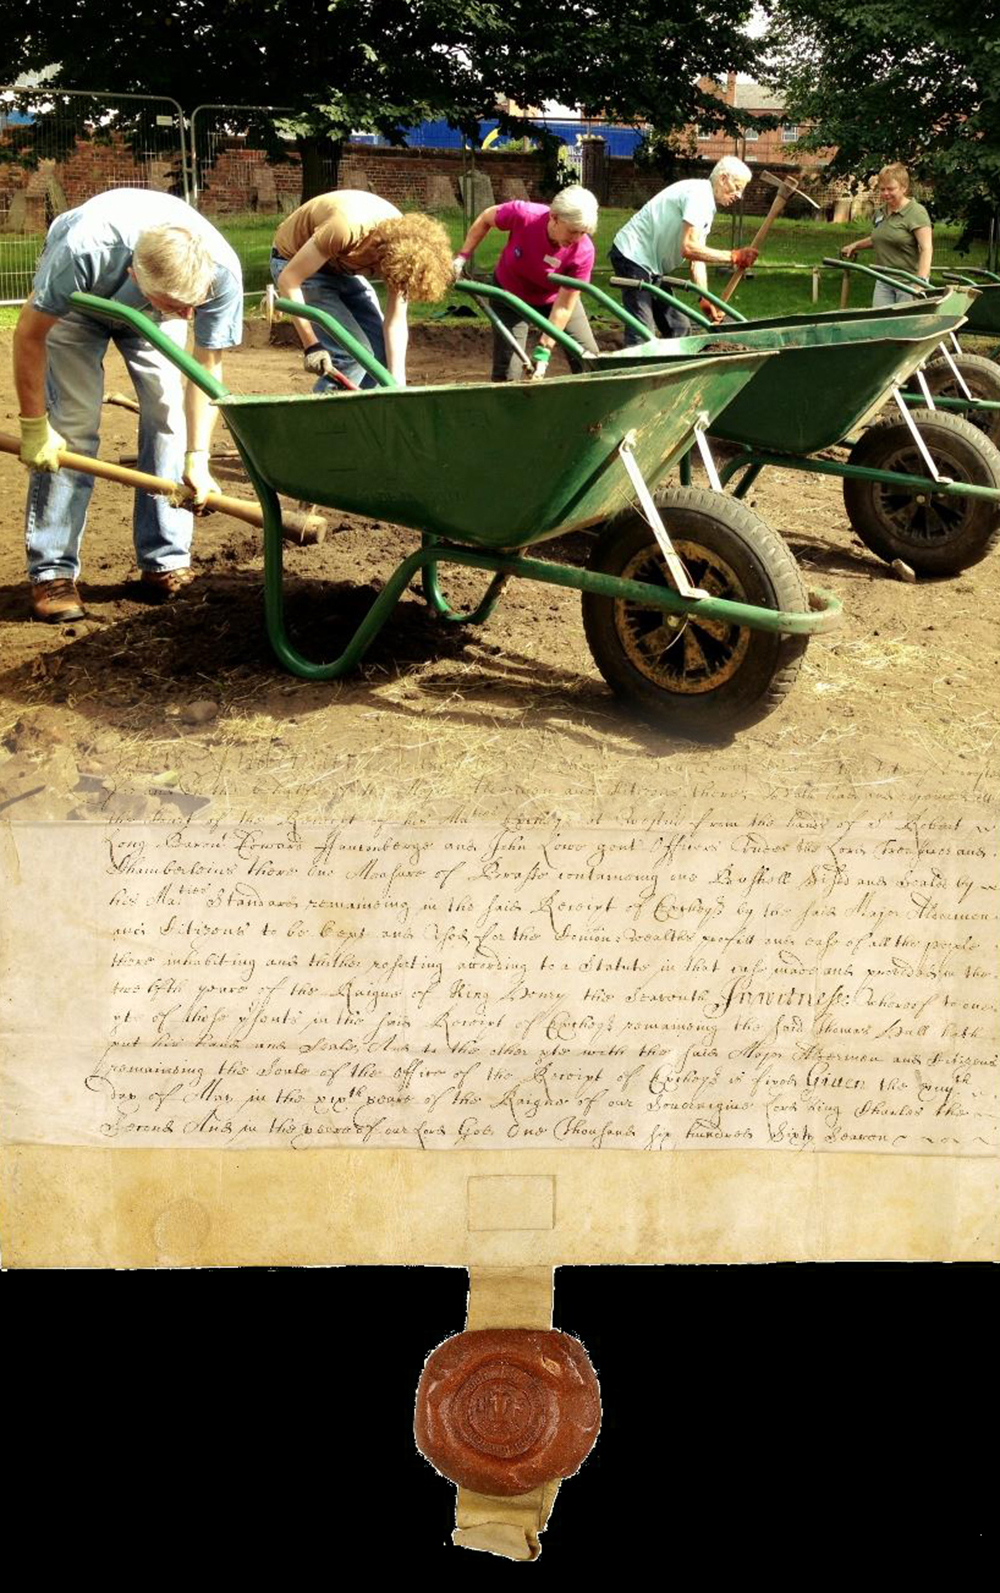 the Court of the Receipt of his Ma.ties Excheqr at Westmr from the hands of Sr Robert
Long Baron Edward and John Lowe gent Officers Under the Lords Tresurers and
Chamberleins there One Measure of Brasse contaimeing one Bushell Sised and Sealed by
his Ma:ties Standard remaineing in the said Receipt of Excheqr by the said Major Aldermen
and Citizens to be kept and Used for the Comonwealths profitt and ease of all the people
there inhabiting and thither resorting according to a Statute in that case made and provided in the
twelfth yeare of the Raigne of King Henry the Seaventh Inwitnesse whereof to one
pte of these psents in the said Receipt of Excheqr remaineing the said Thomas Hall hath
put his hand and Seale, And to the other pte with the said Major Aldermen and Citizens
remaineing the Seale of the Office of the Receipt of Excheqr is fixed Given the
day of May in the xixth yeare of the Raigne of our Soveraigne Lord King Charles the
Second And in the yeare of our Lord God One Thousand six hundred Sixty Seaven